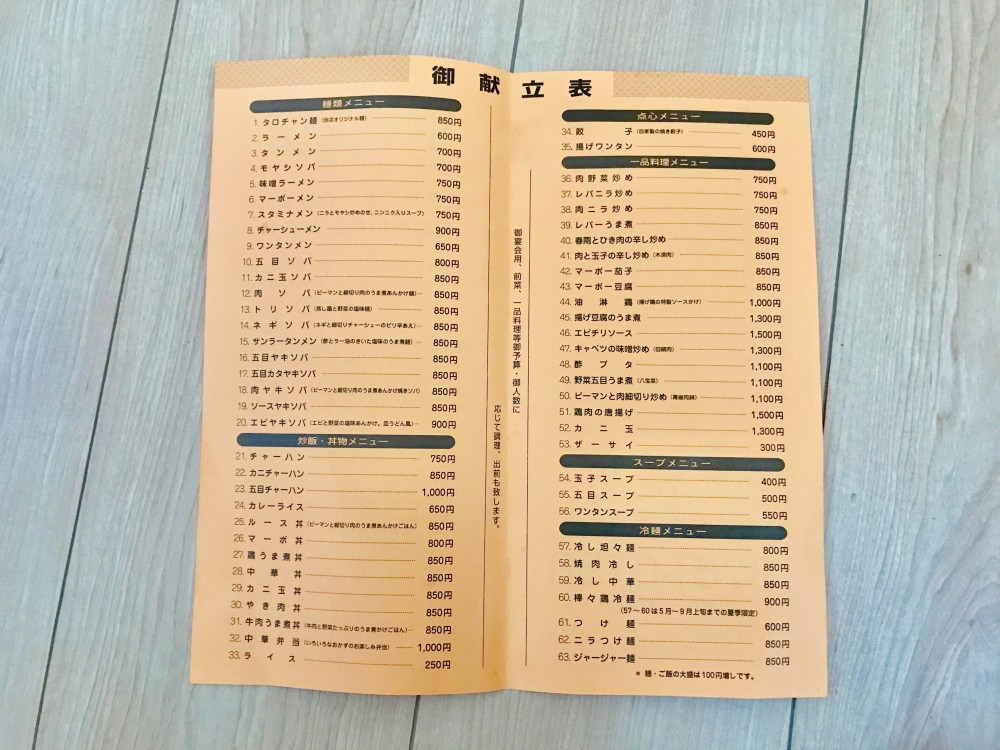 御献立表
麺類メニュー
1. タロチャン麺(当店オリジナル麺) 850円
2. ラーメン 600円
3. タンメン 700円
4. モヤシソバ 700円
5. 味噌ラーメン 750円
6. マーボーメン 750円
7. スタミナメン(ニラとモヤシ炒めのせ、ニンニク入りスープ) 750円
8. チャーシューメン 900円
9. ワンタンメン 650円
10. 五目ソバ 800円
11. カニ玉ソバ 850円
12. 肉ソバ(ピーマンと細切り肉のうま煮あんかけ麺) 850円
13. トリソバ(蒸し鶏と野菜の塩味麺) 850円
14. ネギソバ(ネギと細切りチャーシューのピリ辛あえ) 850円
15. サンラータンメン(酢とラー油のきいた塩味のうま煮麺) 850円
16. 五目ヤキソバ 850円
17. 五目カタヤキソバ 850円
18. 肉ヤキソバ(ピーマンと細切り肉のうま煮あんかけ焼きソバ) 850円
19. ソースヤキソバ 850円
20. エビヤキソバ(エビと野菜の塩味あんかけ。皿うどん風) 900円
炒飯・丼物メニュー
21. チャーハン 750円
22. カニチャーハン 850円
23. 五目チャーハン 1,000円
24. カレーライス 650円
25. ルース丼(ピーマンと細切り肉のうま煮あんかけごはん) 850円
26. マーボ丼 800円
27. 鶏うま煮丼 850円
28. 中華丼 850円
29. カニ玉丼 850円
30. やき肉丼 850円
31. 牛肉うま煮丼(牛肉と野菜たっぷりのうま煮かけごはん) 850円
32. 中華弁当(いろいろなおかずのお楽しみ弁当) 1,000円
33. ライス 250円
御宴会用、前菜、一品料理等御予算・御人数に
応じて調理、出前も致します。
点心メニュー
34. 餃子(自家製の焼き餃子) 450円
35. 揚げワンタン 600円
一品料理メニュー
36. 肉野菜炒め 750円
37. レバニラ炒め 750円
38. 肉ニラ炒め 750円
39. レバーうま煮 850円
40. 春雨とひき肉の辛し炒め 850円
41. 肉と玉子の辛し炒め(木須肉) 850円
42. マーボー茄子 850円
43. マーボー豆腐 850円
44. 油淋鶏(揚げ鶏の特製ソースがけ) 1,000円
45. 揚げ豆腐のうま煮 1,300円
46. エビチリソース 1,500円
47. キャベツの味噌炒め(回鍋肉) 1,300円
48. 酢ブタ 1,100円
49. 野菜五目うま煮(八宝菜) 1,100円
50. ピーマンと肉細切り炒め(青椒肉絲) 1,100円
51. 鶏肉の唐揚げ 1,500円
52. カニ玉 1,300円
53. ザーサイ 300円
スープメニュー
54. 玉子スープ 400円
55. 五目スープ 500円
56. ワンタンスープ 550円
冷麺メニュー
57. 冷し坦々麺 800円
58. 焼肉冷し 850円
59. 冷し中華 850円
60. 棒々鶏冷麺 900円
(57〜60は5月〜9月上旬までの夏季限定)
61. つけ麺 600円
62. ニラつけ麺 850円
63. ジャージャー麺 850円
★ 麺・ご飯の大盛は100円増しです。